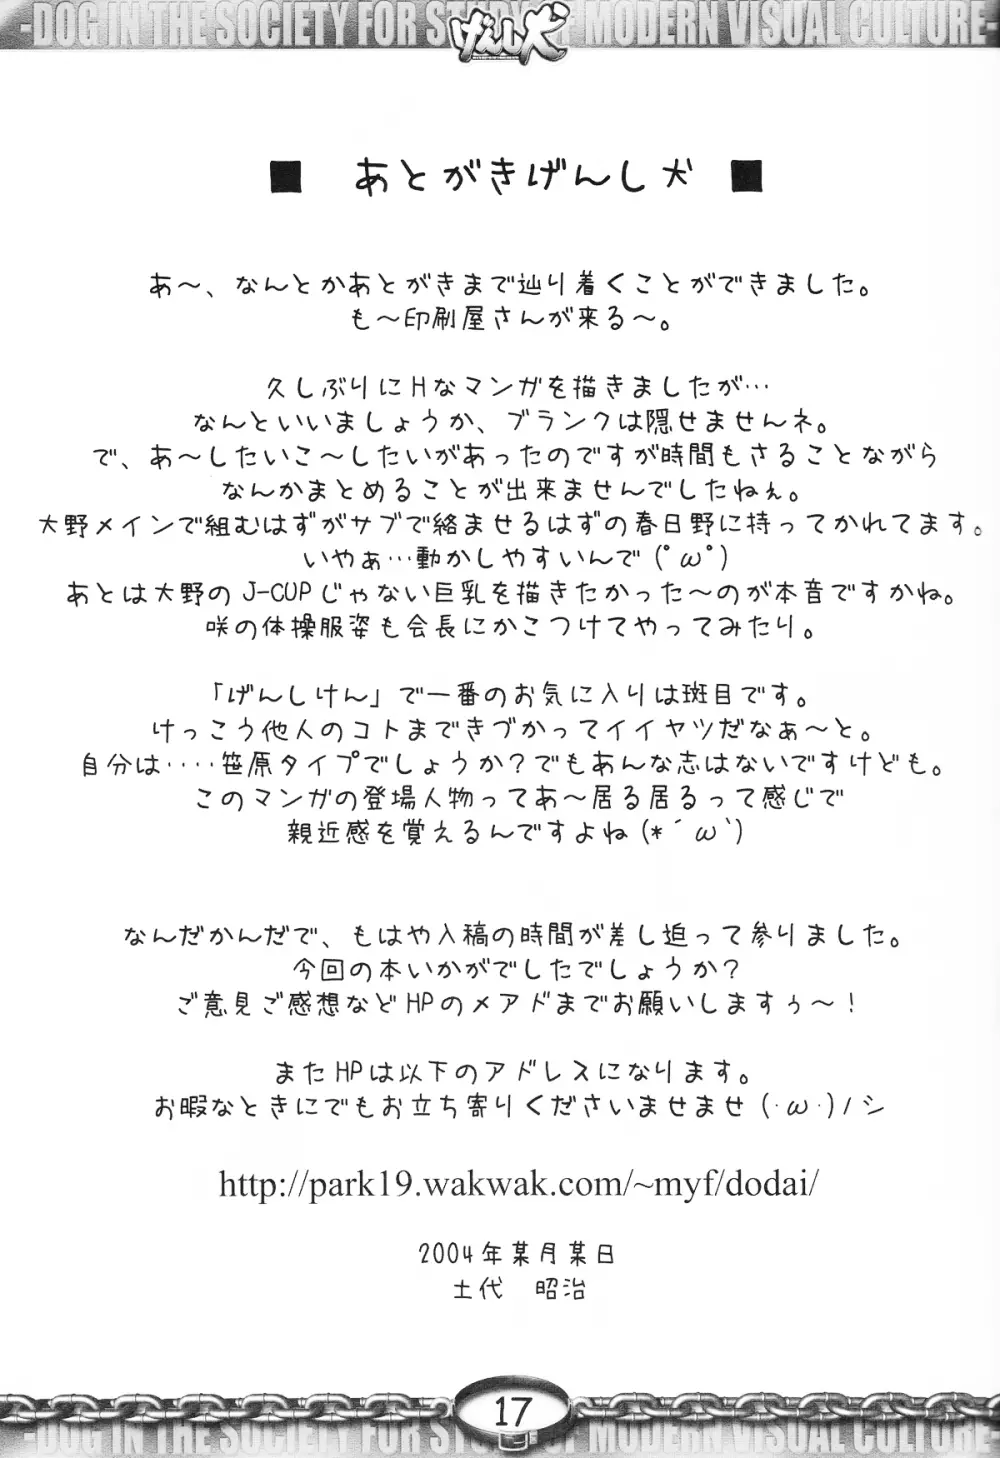 -DOG IN THE SOCIETY FOR STUDY OF MODERN VISUAL CULTURE-
げんし犬
■ あとがきげんし犬 ■
あ～、なんとかあとがきまで辿り着くことができました。
も～印刷屋さんが来る～。
久しぶりにHなマンガを描きましたが…
なんといいましょうか、ブランクは隠せませんネ。
で、あ～したいこ～したいがあったのですが時間もさることながら
なんかまとめることが出来ませんでしたねぇ。
大野メインで組むはずがサブで絡ませるはずの春日野に持ってかれてます。
いやぁ…動かしやすいんで (ﾟωﾟ)
あとは大野のJ-CUPじゃない巨乳を描きたかった～のが本音ですかね。
咲の体操服姿も会長にかこつけてやってみたり。
「げんしけん」で一番のお気に入りは斑目です。
けっこう他人のコトまできづかってイイヤツだなぁ～と。
自分は‥‥笹原タイプでしょうか？でもあんな志はないですけども。
このマンガの登場人物ってあ～居る居るって感じで
親近感を覚えるんですよね (*´ω`)
なんだかんだで、もはや入稿の時間が差し迫って参りました。
今回の本いかがでしたでしょうか？
ご意見ご感想などHPのメアドまでお願いしますぅ～！
またHPは以下のアドレスになります。
お暇なときにでもお立ち寄りくださいませませ (･ω･)ノシ
http://park19.wakwak.com/~myf/dodai/
2004年某月某日
土代　昭治
17
-DOG IN THE SOCIETY FOR STUDY OF MODERN VISUAL CULTURE-